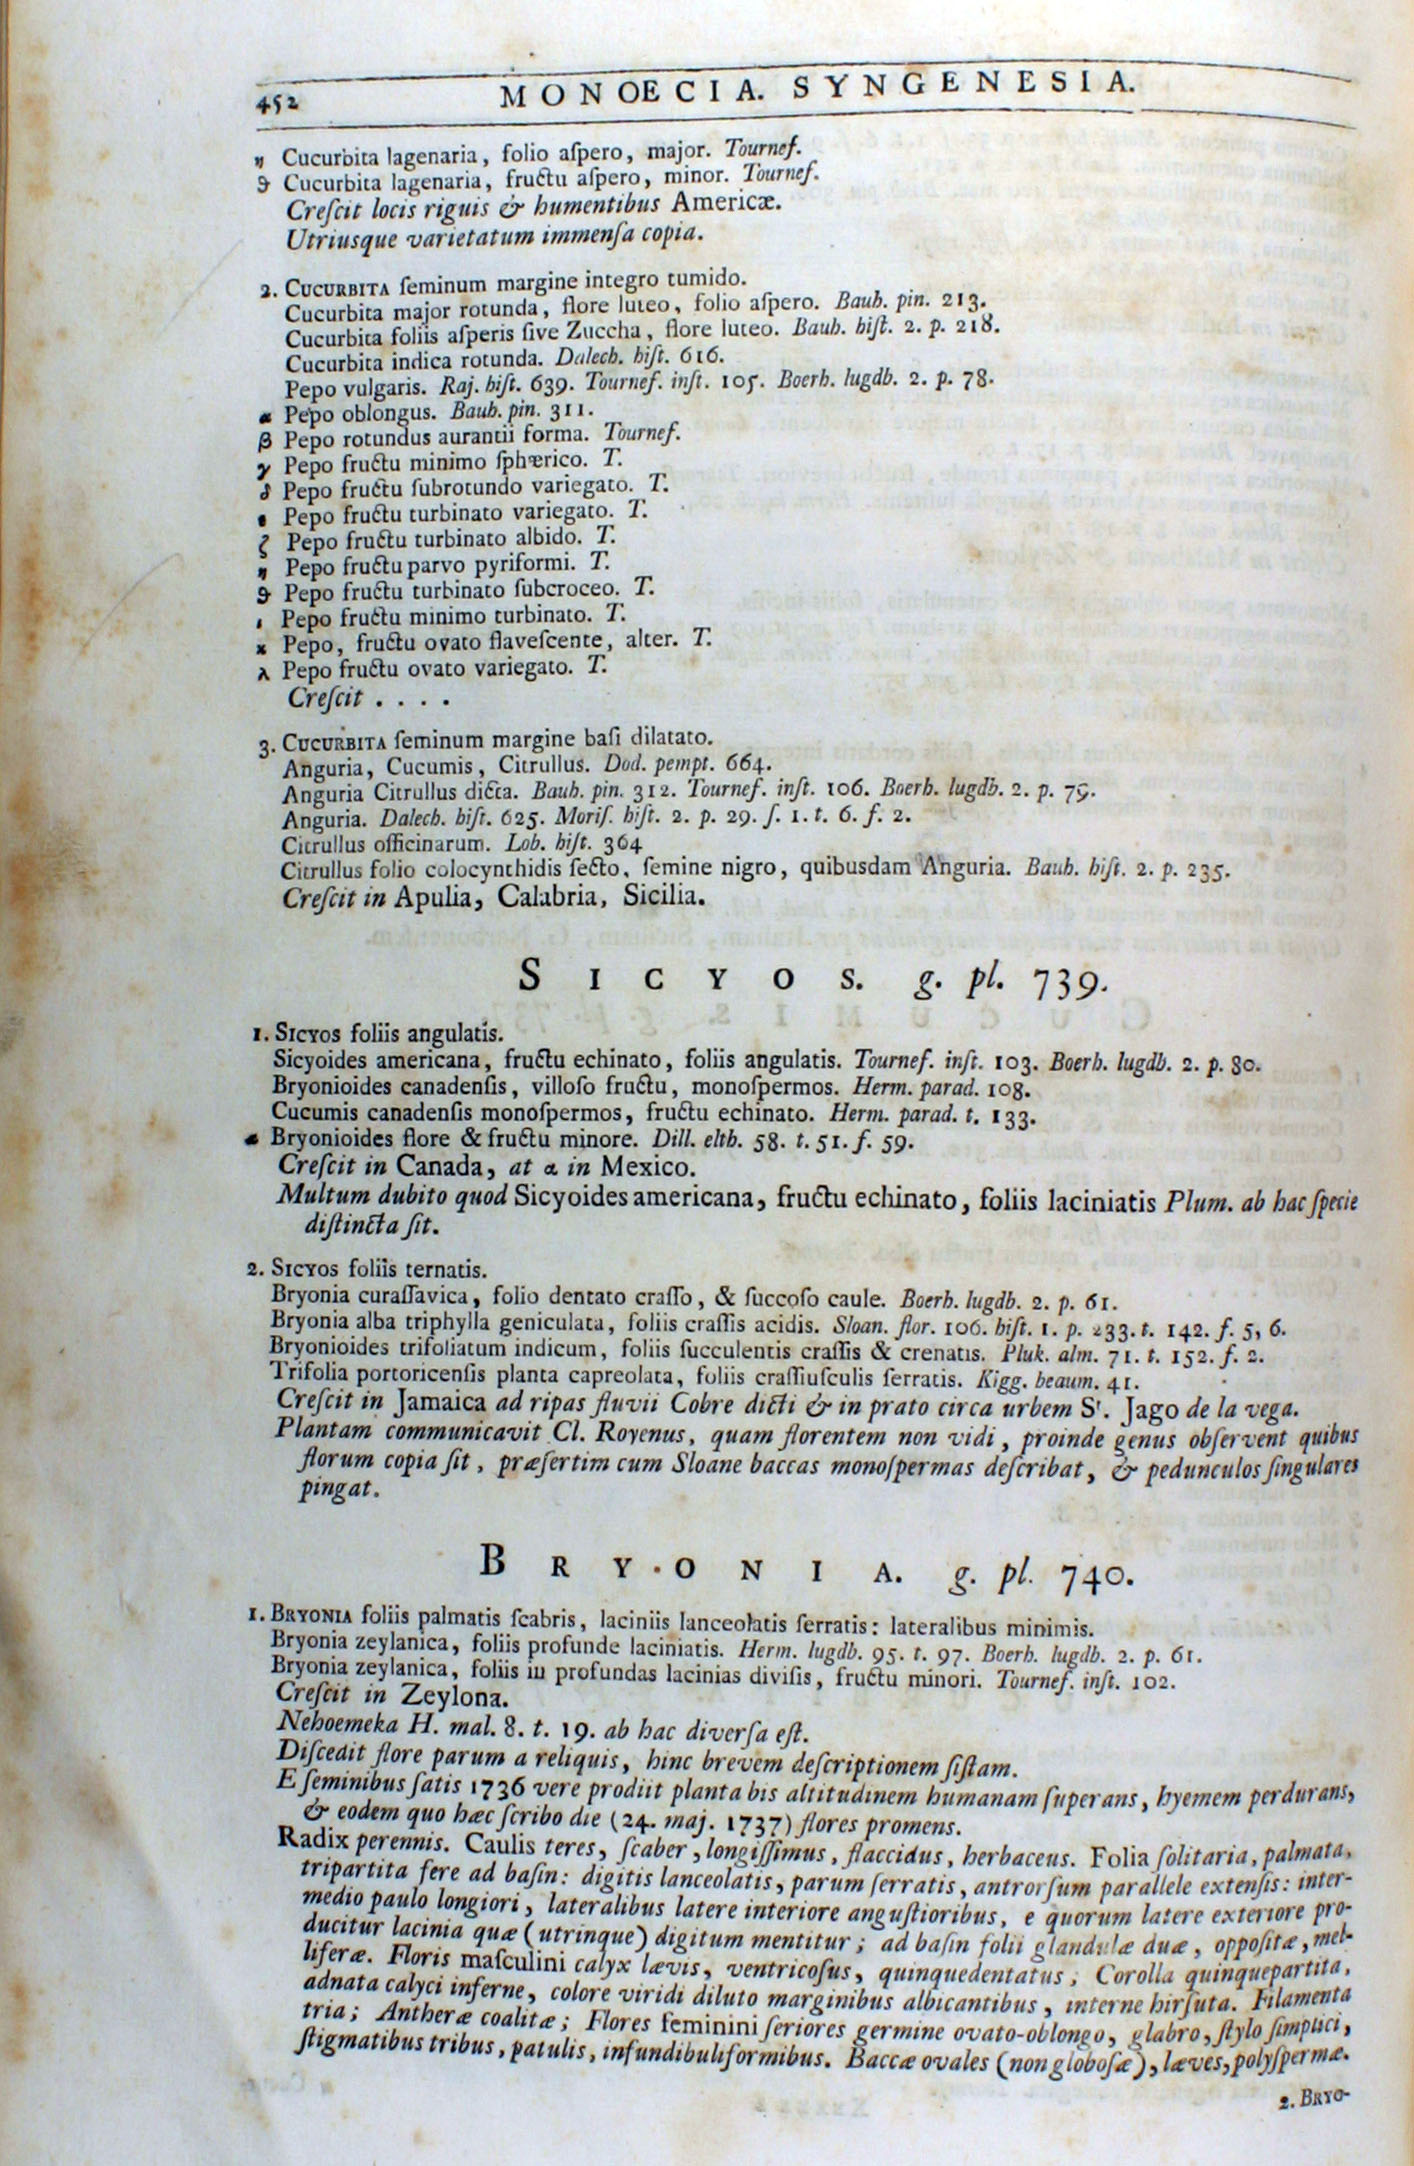 452 MONOECIA. SYNGENESIA.
η Cucurbita lagenaria, folio aſpero, major. Tournef.
ϑ Cucurbita lagenaria, fructu aſpero, minor. Tournef.
Creſcit locis riguis & humentibus Americæ.
Utriusque varietatum immenſa copia.
2. CUCURBITA ſeminum margine integro tumido.
Cucurbita major rotunda, flore luteo, folio aſpero. Bauh. pin. 213.
Cucurbita foliis aſperis ſive Zuccha, flore luteo. Bauh. hiſt. 2. p. 218.
Cucurbita indica rotunda. Dalech. hiſt. 616.
Pepo vulgaris. Raj. hiſt. 639. Tournef. inſt. 105. Boerh. lugdb. 2. p. 78.
α Pepo oblongus. Bauh. pin. 311.
β Pepo rotundus aurantii forma. Tournef.
γ Pepo fructu minimo ſphærico. T.
δ Pepo fructu ſubrotundo variegato. T.
ε Pepo fructu turbinato variegato. T.
ζ Pepo fructu turbinato albido. T.
η Pepo fructu parvo pyriformi. T.
ϑ Pepo fructu turbinato ſubcroceo. T.
ι Pepo fructu minimo turbinato. T.
κ Pepo, fructu ovato flaveſcente, alter. T.
λ Pepo fructu ovato variegato. T.
Creſcit . . . .
3. CUCURBITA ſeminum margine baſi dilatato.
Anguria, Cucumis, Citrullus. Dod. pempt. 664.
Anguria Citrullus dicta. Bauh. pin. 312. Tournef. inſt. 106. Boerh. lugdb. 2. p. 79.
Anguria. Dalech. hiſt. 625. Moriſ. hiſt. 2. p. 29. ſ. 1. t. 6. f. 2.
Citrullus officinarum. Lob. hiſt. 364
Citrullus folio colocynthidis ſecto, ſemine nigro, quibusdam Anguria. Bauh. hiſt. 2. p. 235.
Creſcit in Apulia, Calabria, Sicilia.
SICYOS. g. pl. 739.
1. SICYOS foliis angulatis.
Sicyoides americana, fructu echinato, foliis angulatis. Tournef. inſt. 103. Boerh. lugdb. 2. p. 80.
Bryonioides canadenſis, villoſo fructu, monoſpermos. Herm. parad. 108.
Cucumis canadenſis monoſpermos, fructu echinato. Herm. parad. t. 133.
α Bryonioides flore & fructu minore. Dill. elth. 58. t. 51. f. 59.
Creſcit in Canada, at α in Mexico.
Multum dubito quod Sicyoides americana, fructu echinato, foliis laciniatis Plum. ab hac ſpecie
diſtincta ſit.
2. SICYOS foliis ternatis.
Bryonia curaſſavica, folio dentato craſſo, & ſuccoſo caule. Boerh. lugdb. 2. p. 61.
Bryonia alba triphylla geniculata, foliis craſſis acidis. Sloan. flor. 106. hiſt. 1. p. 233. t. 142. f. 5, 6.
Bryonioides trifoliatum indicum, foliis ſucculentis craſſis & crenatis. Pluk. alm. 71. t. 152. f. 2.
Trifolia portoricenſis planta capreolata, foliis craſſiuſculis ſerratis. Kigg. beaum. 41.
Creſcit in Jamaica ad ripas fluvii Cobre dicti & in prato circa urbem Sᵗ. Jago de la vega.
Plantam communicavit Cl. Royenus, quam florentem non vidi, proinde genus obſervent quibus
florum copia ſit, præſertim cum Sloane baccas monoſpermas deſcribat, & pedunculos ſingulares
pingat.
BRYONIA. g. pl. 740.
1. BRYONIA foliis palmatis ſcabris, laciniis lanceolatis ſerratis: lateralibus minimis.
Bryonia zeylanica, foliis profunde laciniatis. Herm. lugdb. 95. t. 97. Boerh. lugdb. 2. p. 61.
Bryonia zeylanica, foliis in profundas lacinias diviſis, fructu minori. Tournef. inſt. 102.
Creſcit in Zeylona.
Nehoemeka H. mal. 8. t. 19. ab hac diverſa eſt.
Diſcedit flore parum a reliquis, hinc brevem deſcriptionem ſiſtam.
E ſeminibus ſatis 1736 vere prodiit planta bis altitudinem humanam ſuperans, hyemem perdurans,
& eodem quo hæc ſcribo die (24. maj. 1737) flores promens.
Radix perennis. Caulis teres, ſcaber, longiſſimus, flaccidus, herbaceus. Folia ſolitaria, palmata,
tripartita fere ad baſin: digitis lanceolatis, parum ſerratis, antrorſum parallele extenſis: inter-
medio paulo longiori, lateralibus latere interiore anguſtioribus, e quorum latere exteriore pro-
ducitur lacinia quæ (utrinque) digitum mentitur; ad baſin folii glandulæ duæ, oppoſitæ, mel-
liferæ. Floris maſculini calyx lævis, ventricoſus, quinquedentatus; Corolla quinquepartita,
adnata calyci inferne, colore viridi diluto marginibus albicantibus, interne hirſuta. Filamenta
tria; Antheræ coalitæ; Flores feminini ſeriores germine ovato-oblongo, glabro, ſtylo ſimplici,
ſtigmatibus tribus, patulis, infundibuliformibus. Baccæ ovales (non globoſæ), læves, polyſpermæ.
2. BRYO-